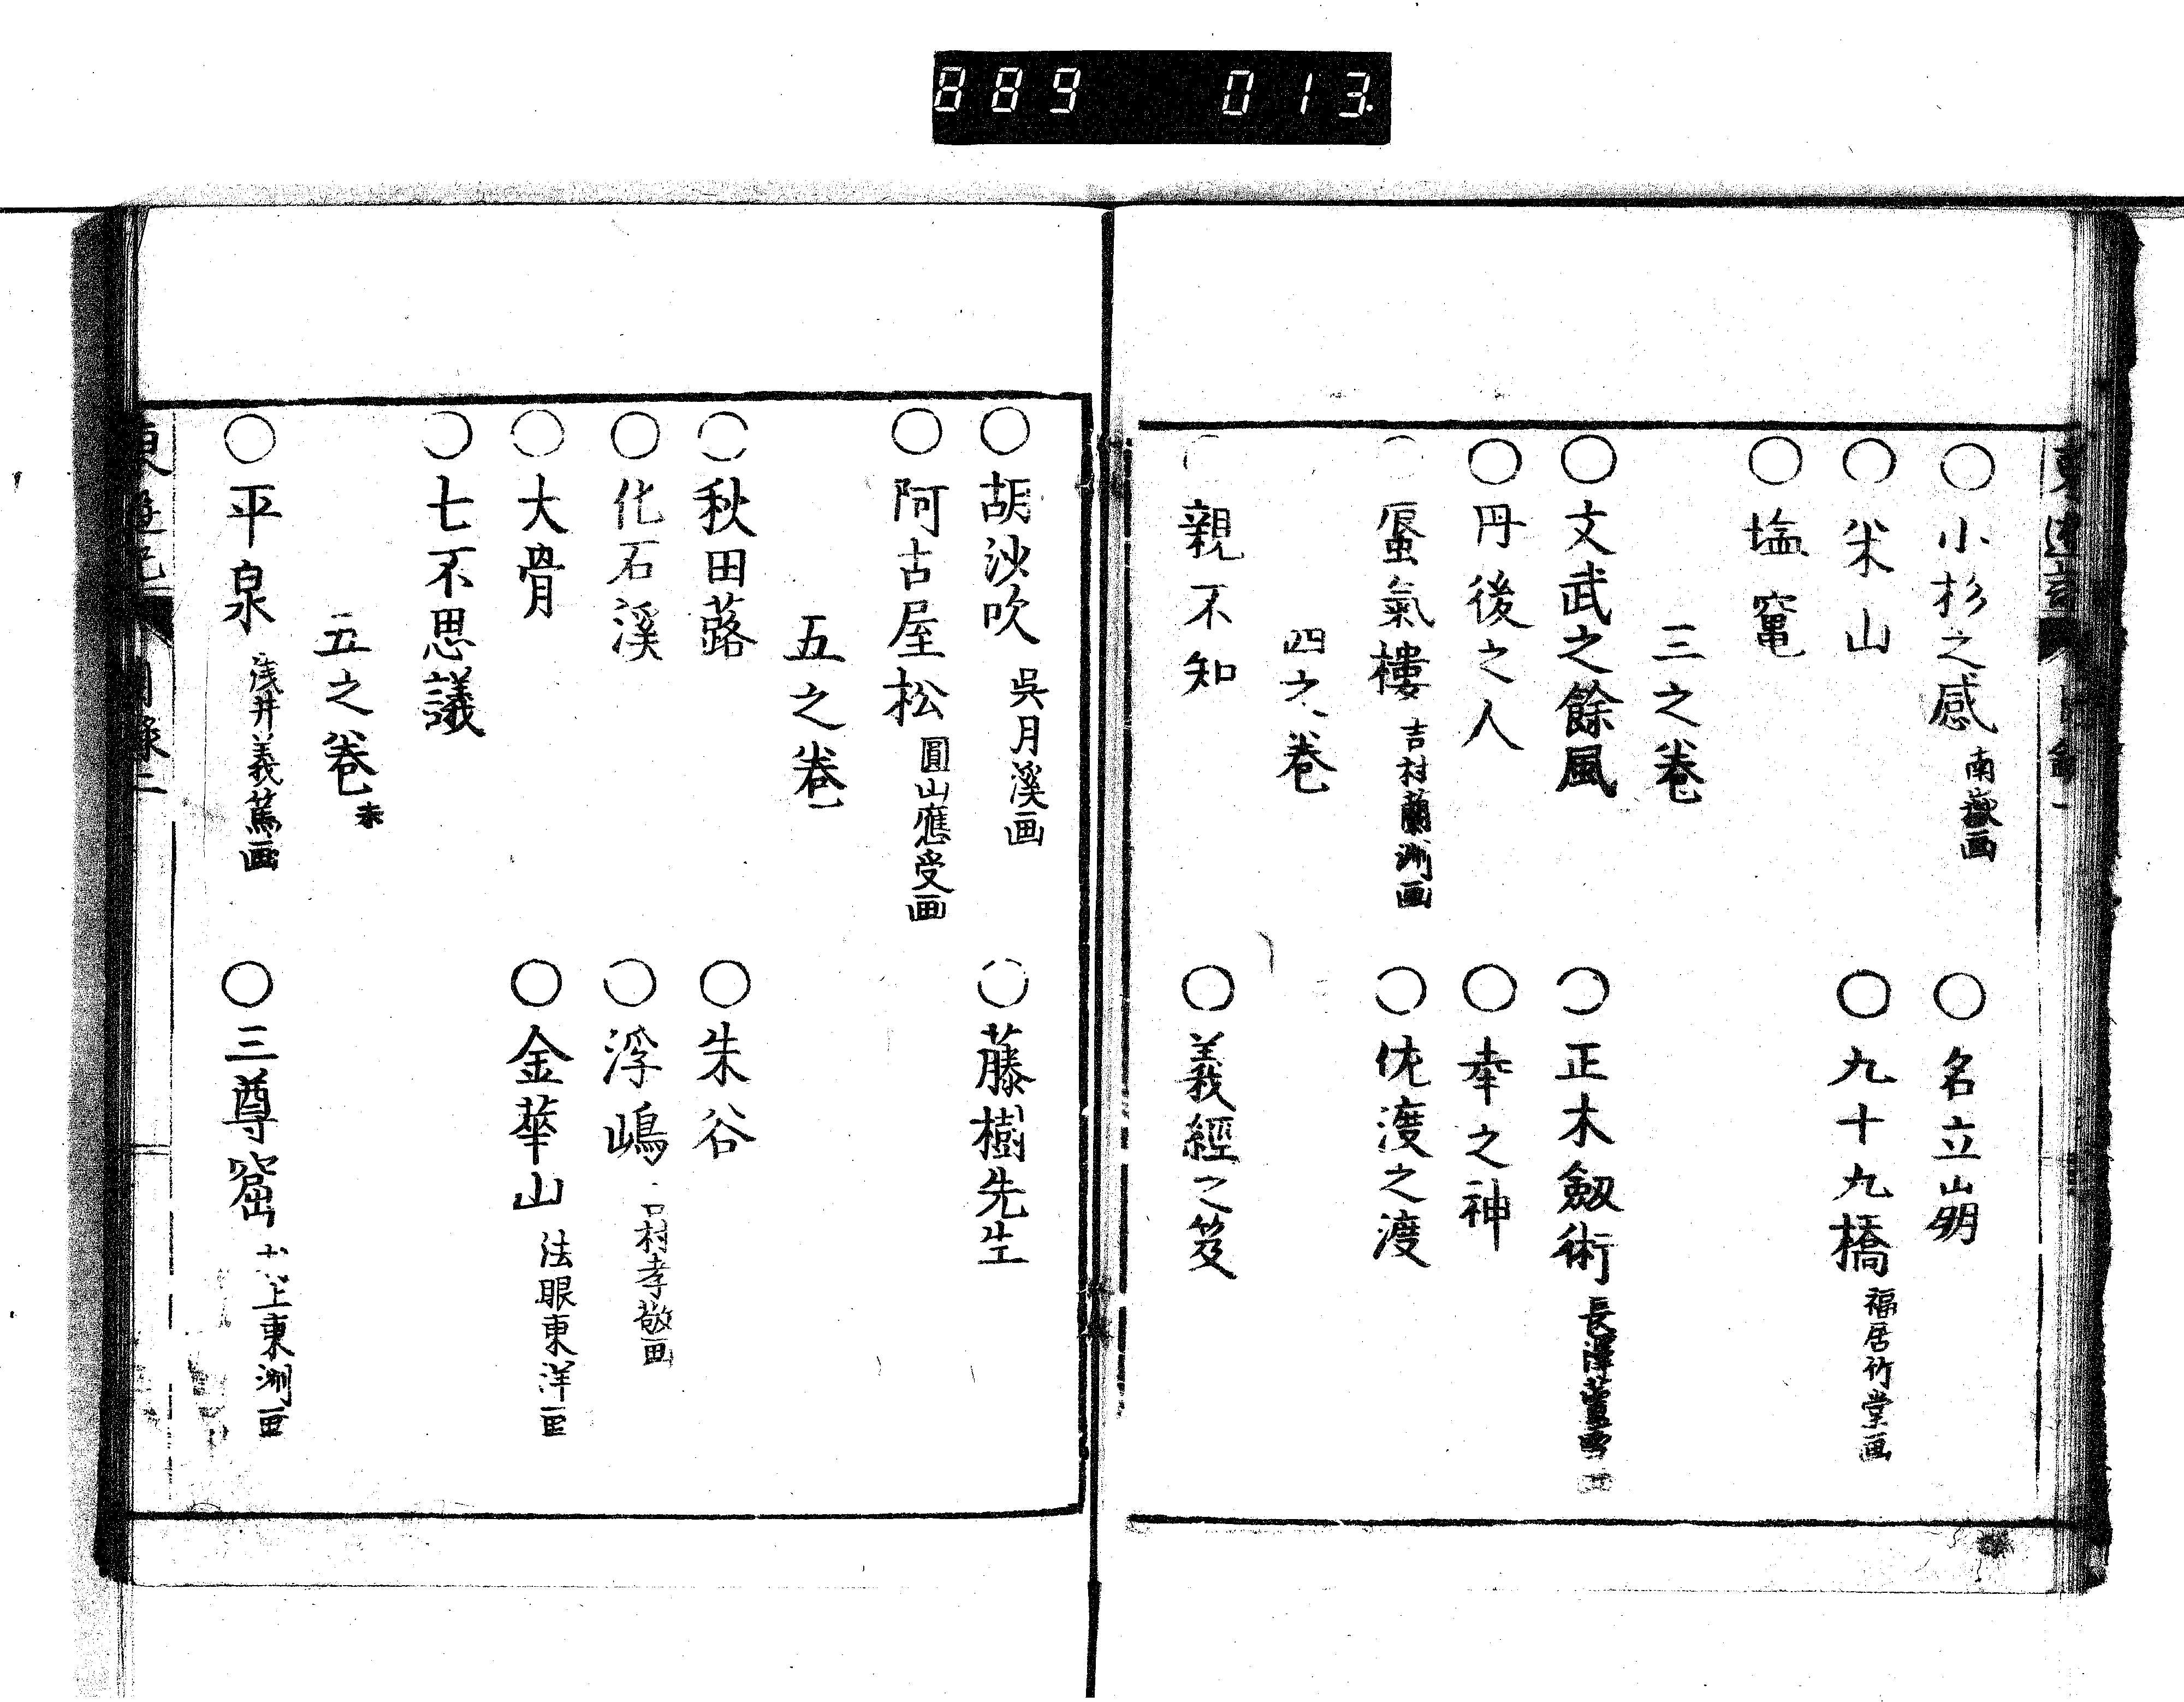 889 013
○小杉之感 南嶽画 ○名立山崩
○米山 ○九十九橋 福居竹堂画
○塩竃
三之巻
○文武之餘風 ○正木劔術 長澤蘆雪画
○丹後之人 ○幸之神
○蜃氣樓 吉村蘭洲画 ○佐渡之渡
四之巻
○親不知 ○義經之笈
○胡沙吹 呉月溪画 ○藤樹先生
○阿古屋松 圓山應受画
五之巻
○秋田蕗 ○朱谷
○化石溪 ○浮嶋 吉村孝敬画
○大骨 ○金華山 法眼東洋画
○七不思議
五之巻末
○平泉 浅井義篤画 ○三尊窟 上東洲画